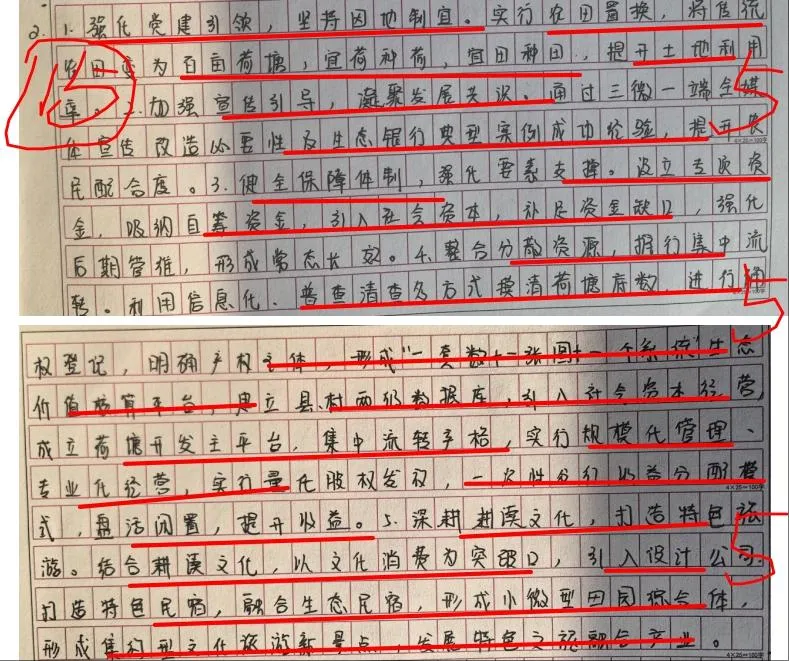 2. 1. 强化党建引领，坚持因地制宜。实行农田置换，将低洼
农田变为百亩荷塘，宜荷种荷，宜田种田，提升土地利用
率。2. 加强宣传引导，凝聚发展共识。通过三微一端全媒
体宣传改造必要性及生态银行典型实例成功经验，提升农
4×25=100字
民配合度。3. 健全保障体制，强化要素支撑。设立专项资
金，吸纳自筹资金，引入社会资本，补足资金缺口，强化
后期管护，形成常态长效。4. 整合分散资源，推行集中流
转。利用信息化、普查清查多方式摸清荷塘底数，进行确
权登记，明确产权主体，形成“一套数+一张图+一个系统”生态
价值核算平台，建立县、村两级数据库，引入社会资本经营，
成立荷塘开发主平台，集中流转予格，实行规模化管理、
专业化经营，实行量化股权发放，一次性分行收益分配模
4×25=100字
式，盘活闲置，提升收益。5. 深耕耕读文化，打造特色旅
游。结合耕读文化，以文化消费为突破口，引入设计公司，
打造特色民宿，融合生态民宿，形成小微型田园综合体，
形成集约型文化旅游新景点，发展特色文旅融合产业。
4×25=100字
15
5
5
5